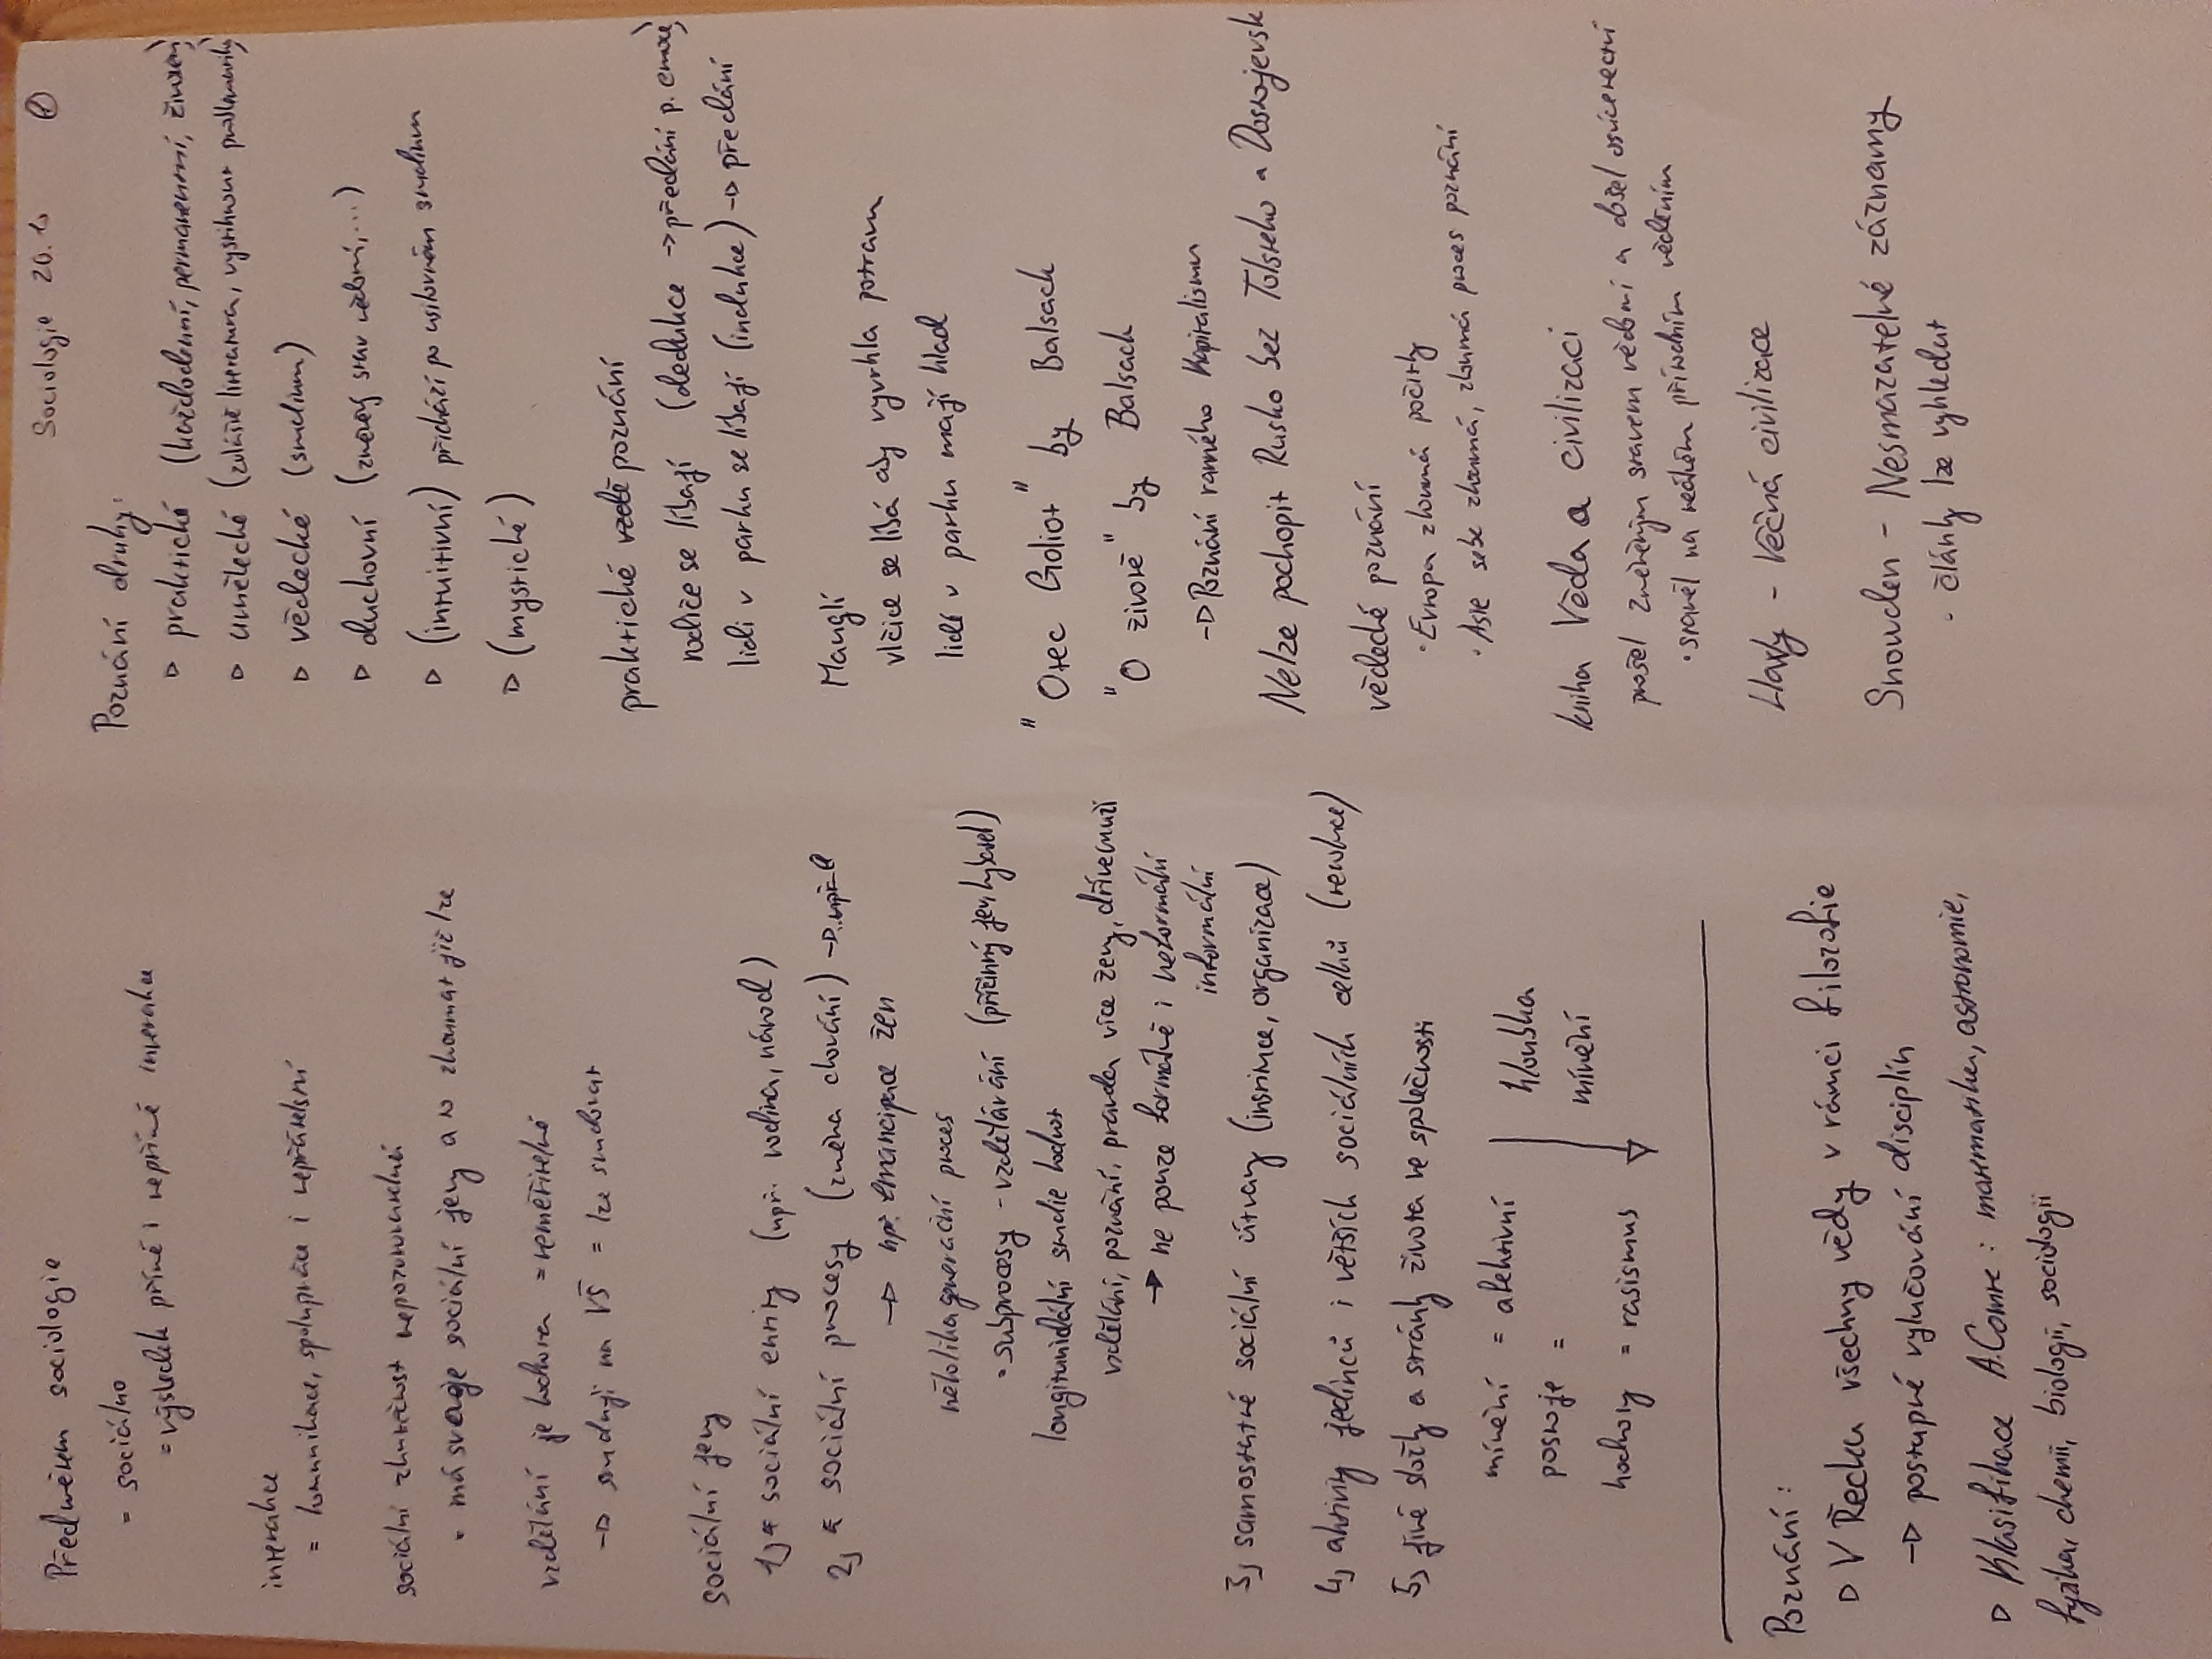 Předmětem sociologie
= sociálno
= výsledek přímé i nepřímé interakce
interakce
= komunikace, spolupráce i nepřátelství
sociální zkutečnost neporozumění
= má svoje sociální jevy a ty zkoumat již lze
vzdělání je hodnota = neměřitelné
→ studují na VŠ = lze studovat
sociální jevy
1) sociální entity (např. rodina, národ)
2) sociální procesy (změna chování)
→ např. emancipace žen
několika generační proces
= subprocesy - vzdělávání (příčinný jev, hybatel)
longitunidální studie hodnot
vzdělání, poznání, pravda více ženy, dříve muži
→ ne pouze formálně i neformální
informální
3) samostatné sociální útvary (instituce, organizace)
4) aktivity jedinců i větších sociálních celků (revoluce)
5) jiné složky a stránky života ve společnosti
mínění = afektivní hloubka
postoje = mínění
hodnoty = rasismus
Poznání:
▷ V Řecku všechny vědy v rámci filozofie
→ postupné vylučování disciplín
▷ Klasifikace A. Comte: matematika, astronomie,
fyzika, chemii, biologii, sociologii
Sociologie 20. 1.
Poznání druhy:
▷ praktické (každodenní, permanentní, životem)
▷ umělecké (zvláště literatura, vystihnout problematiky)
▷ vědecké (studium)
▷ duchovní (změněný stav vědomí,...)
▷ (intuitivní) přichází po usilovném studium
▷ (mystické)
praktické poznání
rodiče se líbají (dedukce → předání p. emoce)
lidi v parku se líbají (indukce) → předání
Mauglí
vlčice se líbá aby vyvrhla potravu
lidi v parku mají hlad
"Otec Goliot" by Balsach
"O životě" by Balsach
→ Poznání raného Kapitalismu
Nelze pochopit Rusko bez Tolstého a Dostojevsk
vědecké poznání
· Evropa zkoumá počitky
· Asie sebe zkoumá, zkoumá proces poznání
kniha Věda a civilizaci
prošel změněným stavem vědomí a došel osvícenectví
· stavěl na nějakém příchozím věděním
Havly - Věčná civilizace
Snowden - Nesmazatelné záznamy
· články lze vyhledat